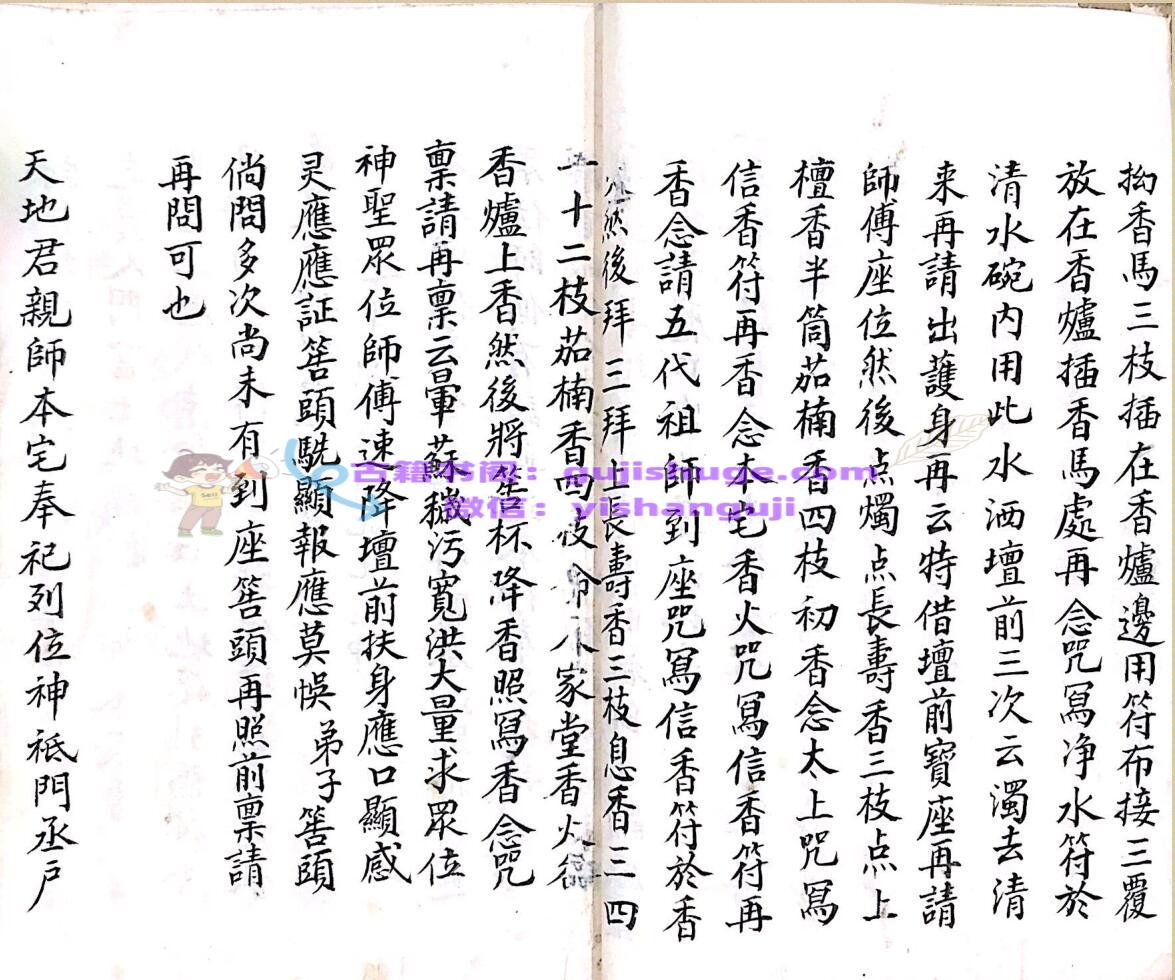 拗香馬三枝插在香爐邊用符布接三覆
放在香爐插香馬處再念咒冩净水符於
清水碗内用此水洒壇前三次云濁去清
来再請出護身再云特借壇前寳座再請
師傅座位然後点燭点長壽香三枝点上
檀香半筒茄楠香四枝初香念太上咒冩
信香符再香念本宅香火咒冩信香符再
香念請五代祖師到座咒冩信香符於香
然後拜三拜上長壽香三枝息香三四
十二枝茄楠香四枝家堂香火
香爐上香然後將筶杯降香照冩香念咒
禀請再禀云暈蘇穢污寬洪大量求眾位
神聖眾位師傅速降壇前扶身應口顯感
灵應應証筶頭駫顯報應莫悞 弟子筶頭
倘問多次尚未有到座筶頭再照前禀請
再問可也
天地君親師本宅奉祀列位神祇門丞户
古籍书阁：gujishuge.com
微信：yishanguji